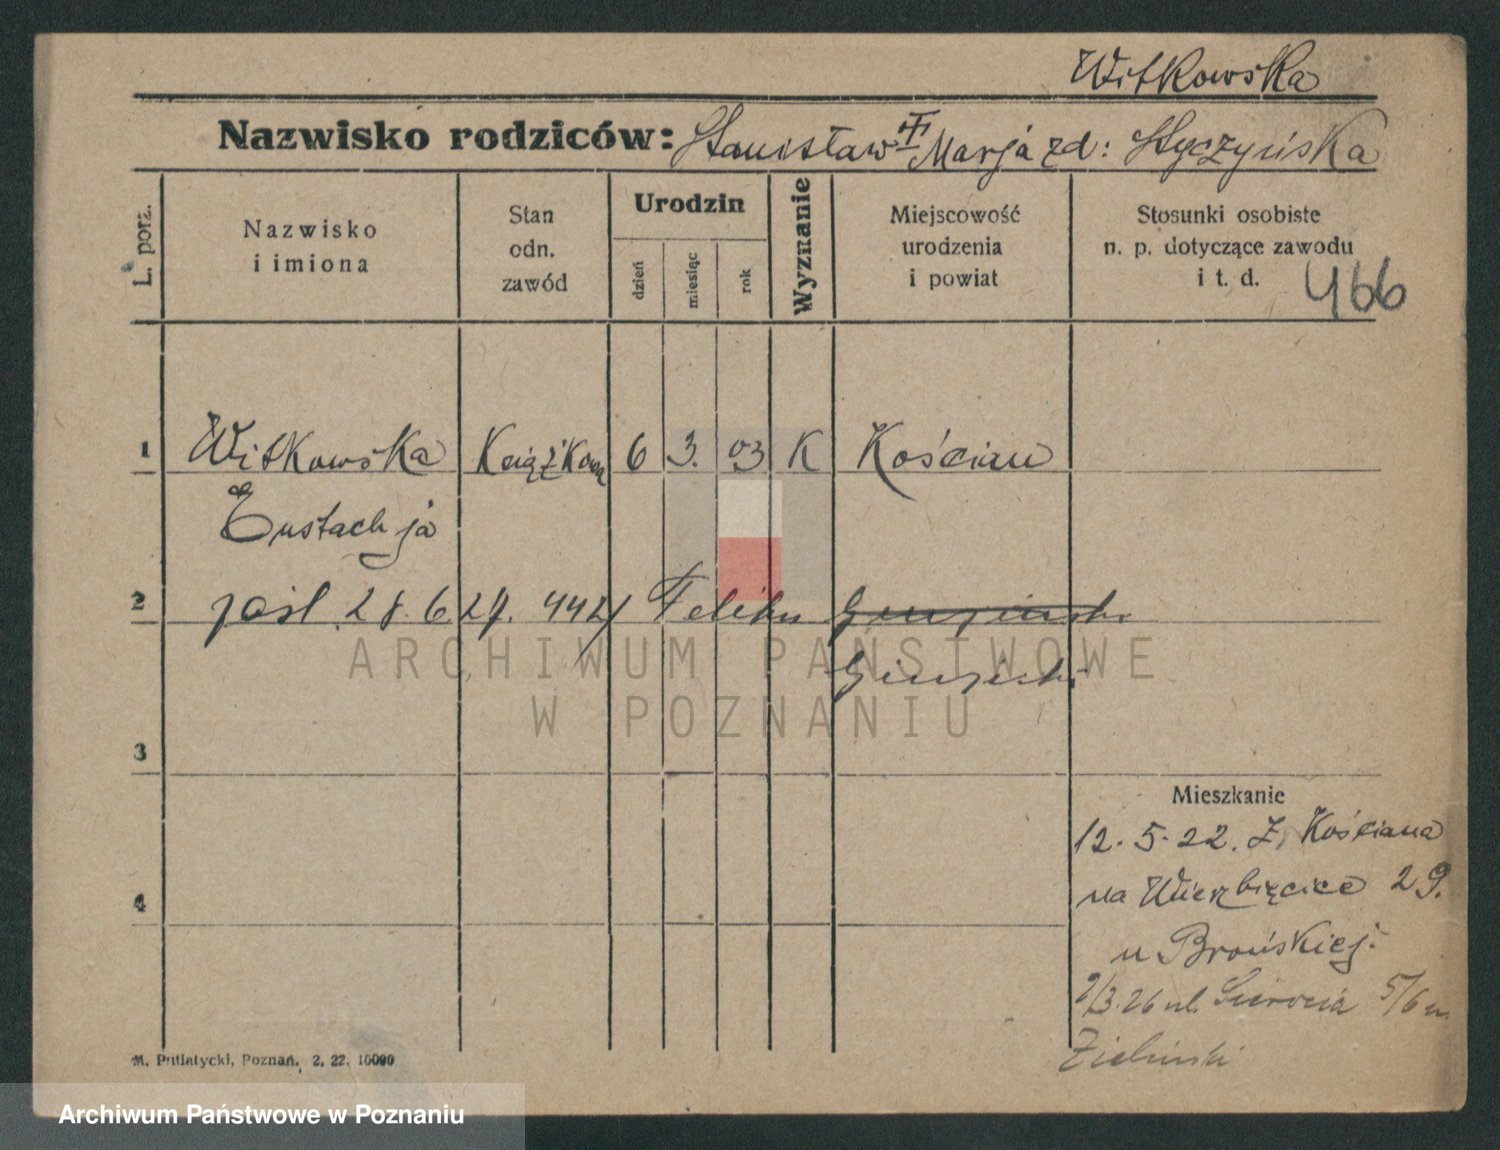 Witkowska
Nazwisko rodziców: Stanisław Marja zd: Styczyńska
L. porz.
Nazwisko
i imiona
Stan
odn.
zawód
Urodzin
dzień
miesiąc
rok
Wyznanie
Miejscowość
urodzenia
i powiat
Stosunki osobiste
n. p. dotyczące zawodu
i t. d.
466
1 Witkowska Książkowa 6 3. 03 K Kościan
Eustachja
2 pośl 28.6.27. 442/ Feliks
3
ARCHIWUM PAŃSTWOWE
W POZNANIU
Mieszkanie
12. 5. 22. Z, Kościana
na Wierzbięcice 29.
u Brońskiej.
4
2/3.26 ul. Sieroca 5/6 u.
Zieliński
M. Putiatycki, Poznań. 2. 22. 10000
Archiwum Państwowe w Poznaniu